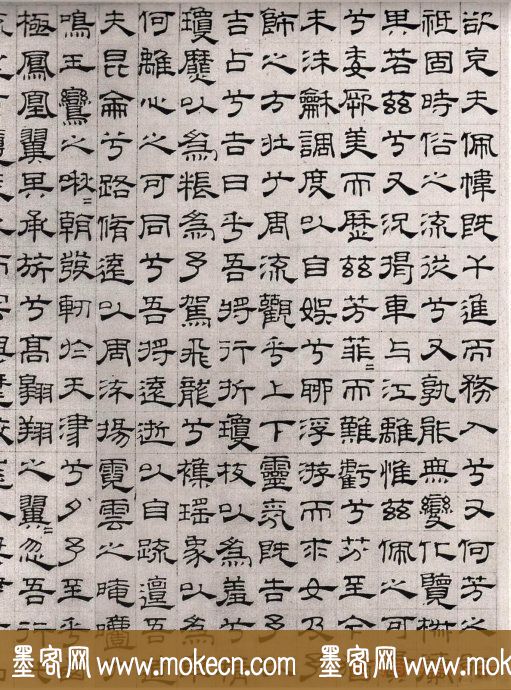 欲充夫佩幃既干進而務入兮又何芳之
祗固時俗之流從兮又孰能無變化覽椒蘭
其若茲兮又況揭車与江離惟茲佩之可
兮委厥美而歷茲芳菲=而難虧兮芬至今
未沬龢調度以自娛兮聊浮游而求女及予
飾之方壯兮周流觀乎上下靈氛既告予
吉占兮吉日乎吾将行折瓊枝以為羞兮
瓊爢以為粻為予駕飛龍兮雜瑤象以為
何離心之可同兮吾将遠逝以自疏邅吾
夫昆侖兮路脩遠以周流揚霓雲之晻
鳴玉鸞之啾=朝發軔於天津兮夕予至乎
極鳳凰翼其承旂兮高翱翔之翼=忽吾行
墨客网 www.mokecn.com 墨客网 www.mokecn.com